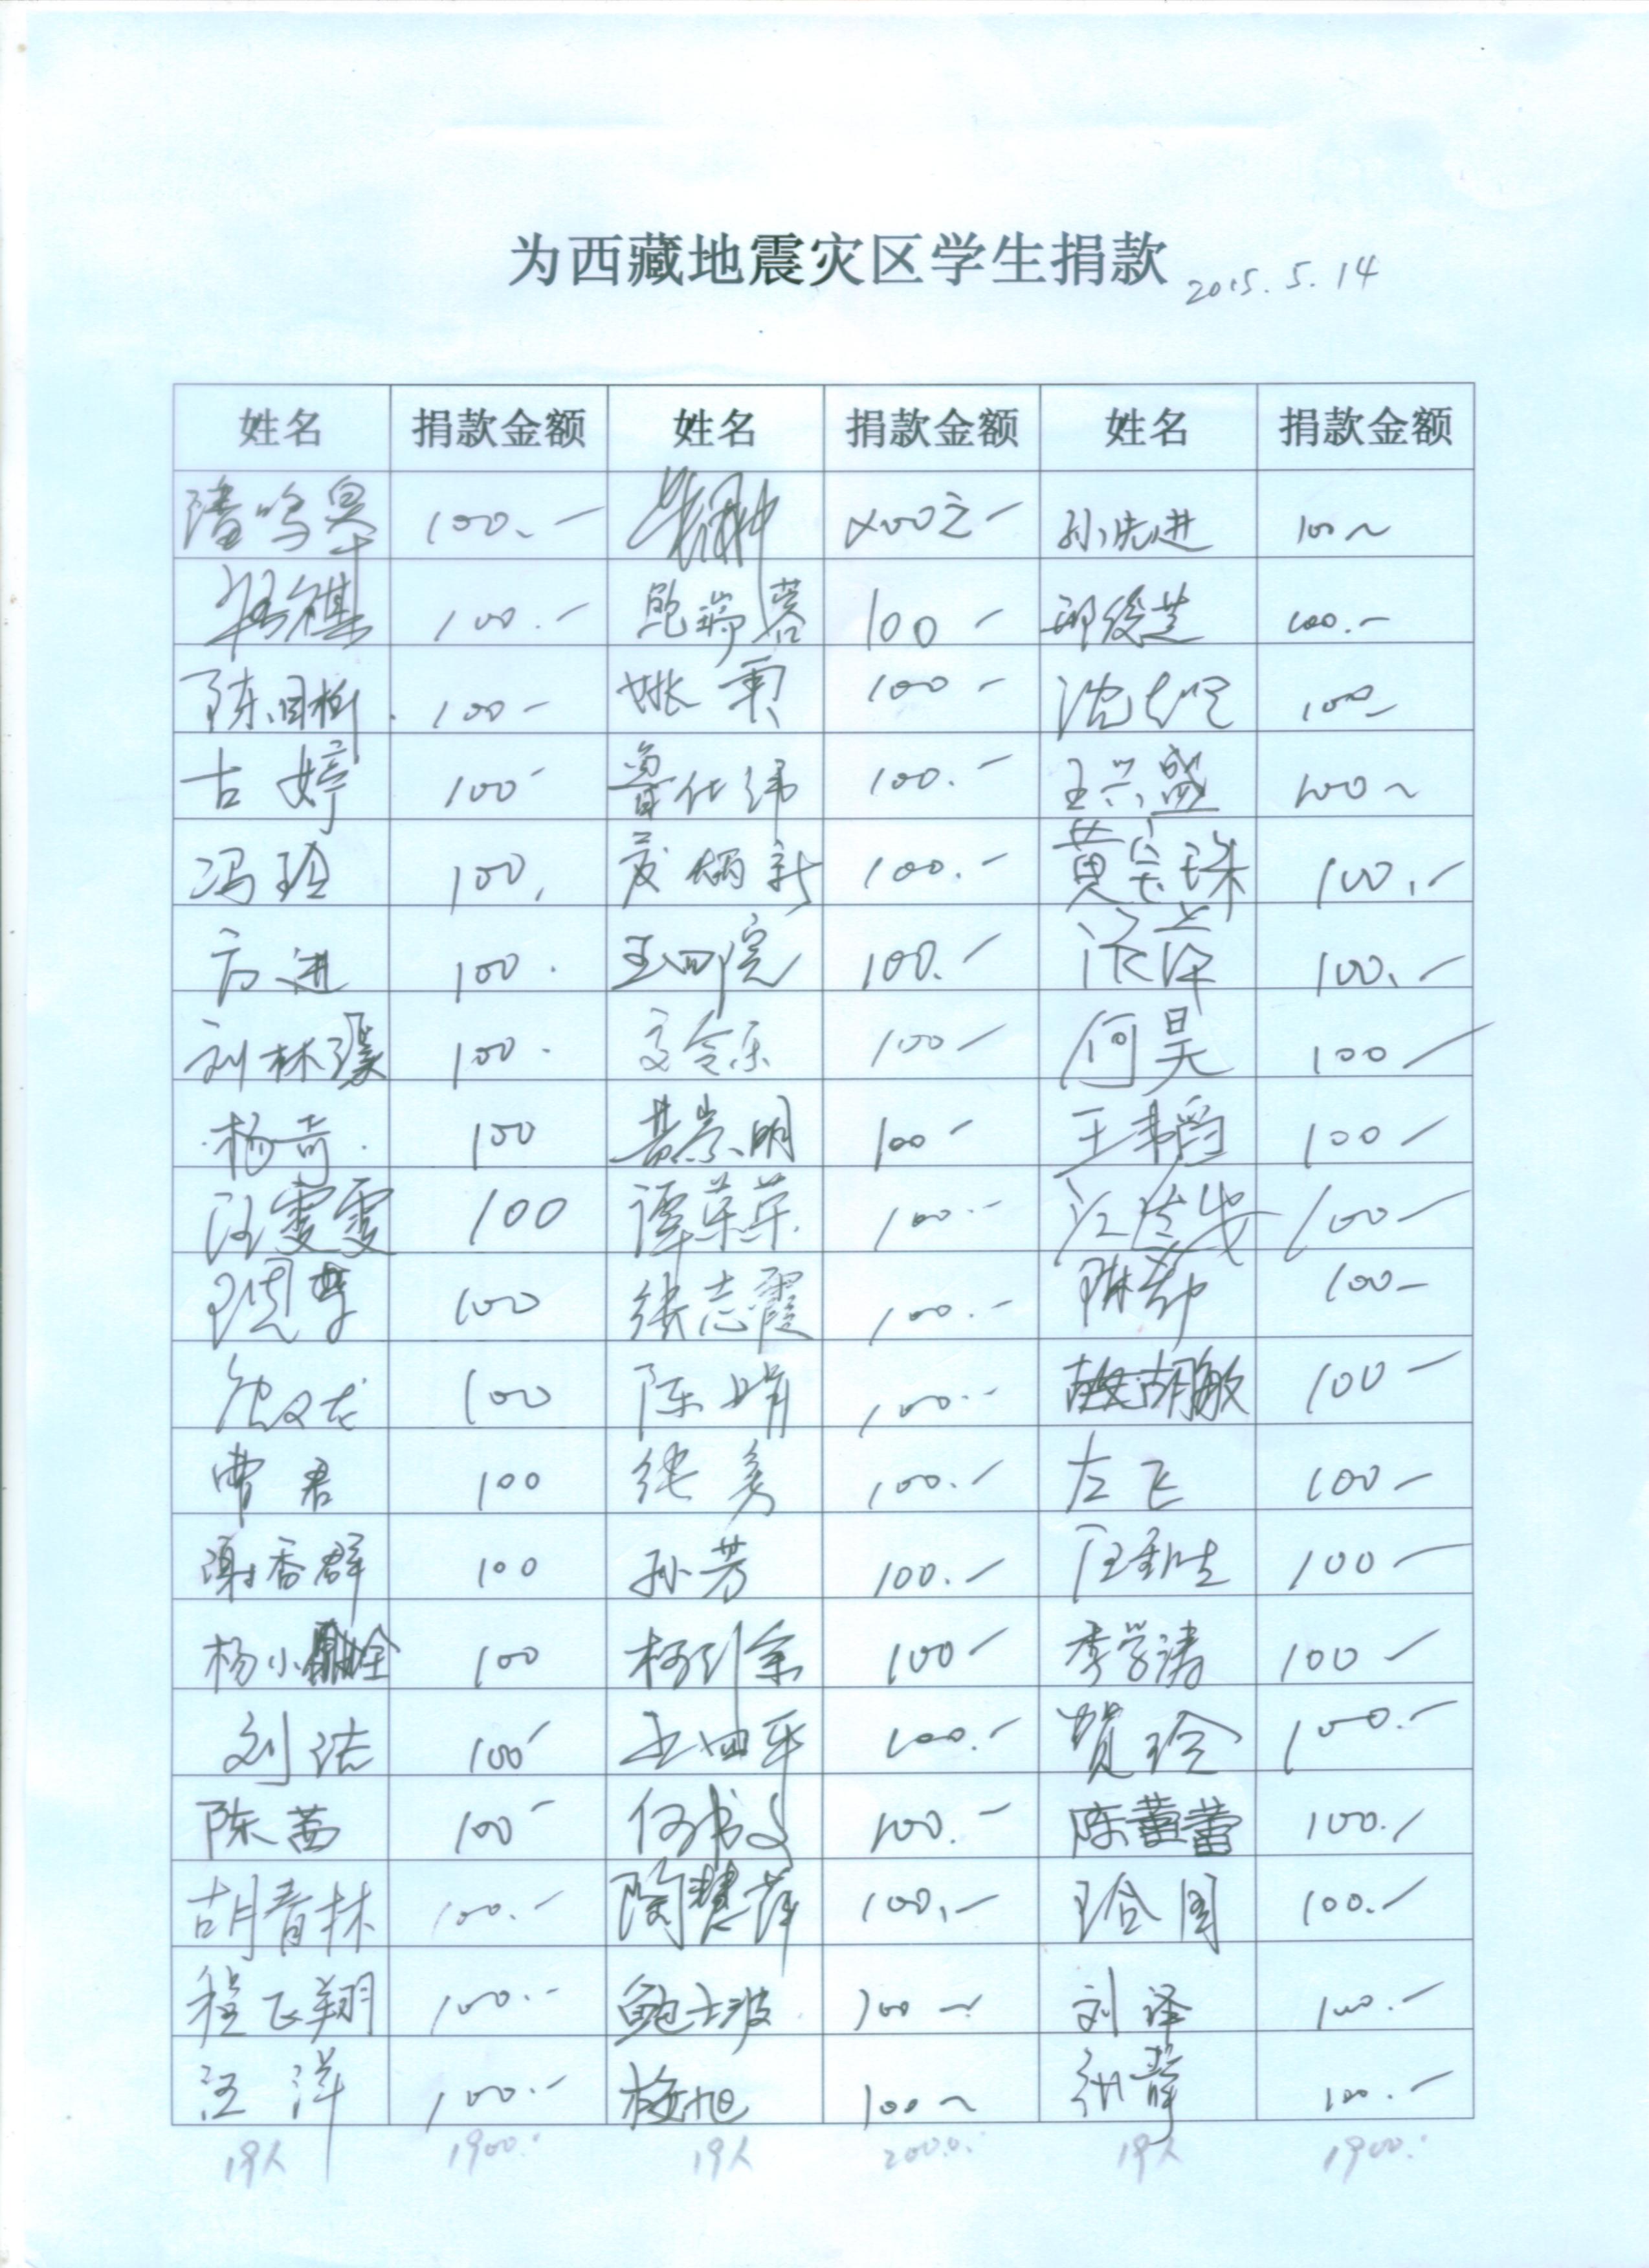 为西藏地震灾区学生捐款 2015.5.14
姓名 捐款金额 姓名 捐款金额 姓名 捐款金额
潘鸣皋 100.- 00元- 孙先进 100~
100.- 鲍瑞蓉 100- 邱俊芝 100.-
陈国树 100- 姚勇 100- 沈 100-
古婷 100- 鲁仕纬 100.- 王兴盛 100~
冯玲 100. 炳新 100.- 黄宝珠 100.-
方进 100. 王四宽 100.- 100.-
刘林璞 100. 文令乐 100- 何昊 100-
杨奇 100 黄崇明 100- 王韩 100-
汪雯雯 100 谭苹苹 100.- 江 100-
100 张志霞 100.- 陈 100-
100 陈娟 100.- 胡敏 100-
曹君 100 张勇 100.- 左飞 100-
谢香群 100 孙芳 100.- 汪 100-
杨小 100 柯引余 100- 李学涛 100-
刘洁 100- 王四平 100.- 贺玲 100.-
陈茜 100- 何书文 100.- 陈蕾蕾 100.-
胡青林 100.- 陶慧萍 100.- 100.-
程飞翔 100.- 鲍士波 100- 刘译 100.-
汪洋 100.- 梅旭 100~ 静 100.-
19人 1900.- 19人 2000.- 19人 1900.-